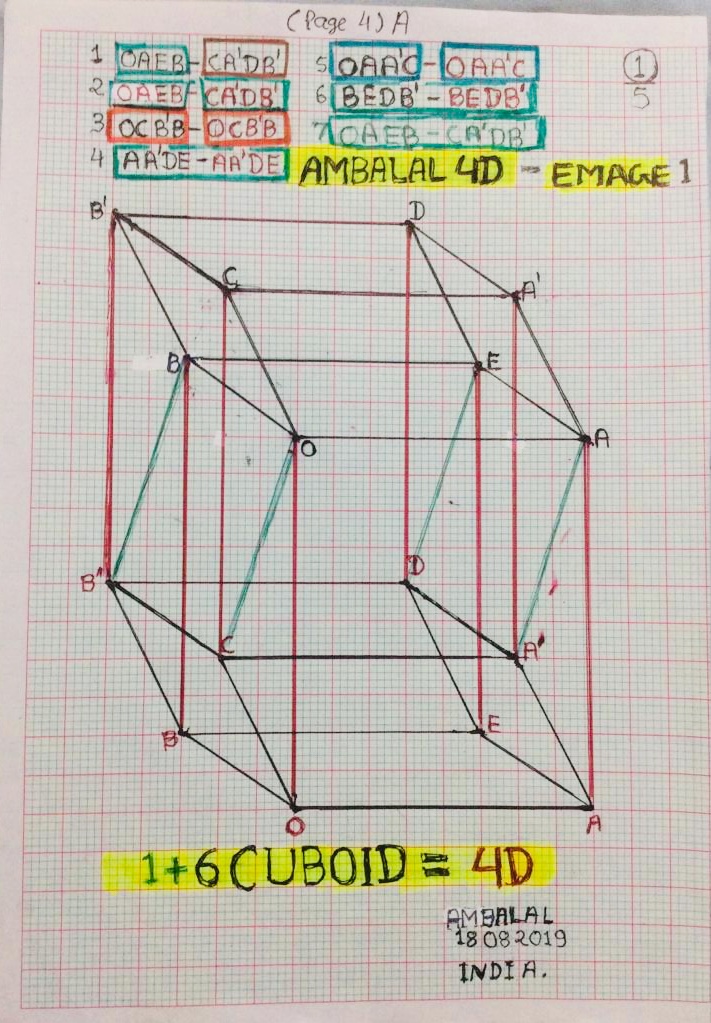 (Page 4) A
1 OAEB-CA'DB'
2 OAEB-CA'DB'
3 OCB'B-OCB'B
4 AA'DE-AA'DE
5 OAA'C-OAA'C
6 BEDB'-BEDB'
7 OAEB-CA'DB'
1/5
AMBALAL 4D - EMAGE 1
B' D
C A'
B E
O A
B' D
C A'
B E
O A
1+6 CUBOID = 4D
AMBALAL
18 08 2019
INDIA.